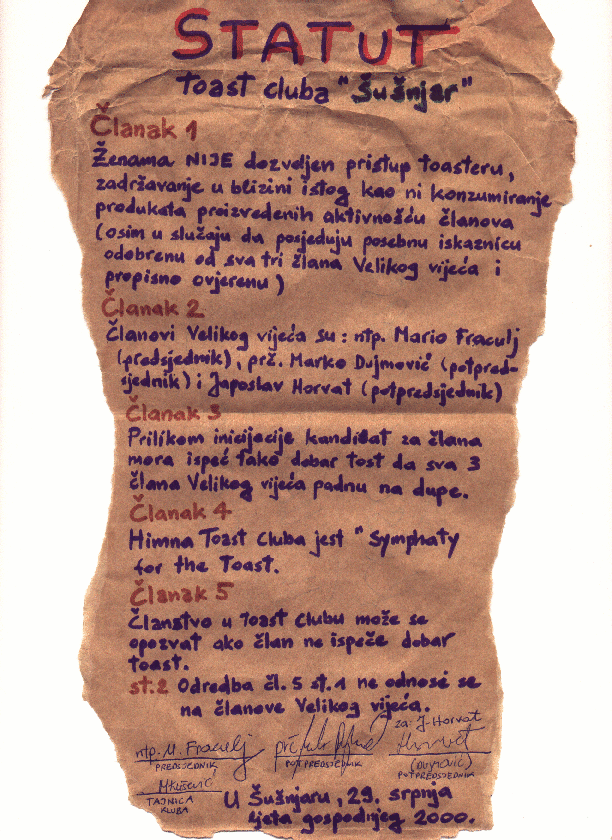 STATUT
Toast cluba "Šušnjar"
Članak 1
Ženama NIJE dozvoljen pristup toasteru,
zadržavanje u blizini istog kao ni konzumiranje
produkata proizvedenih aktivnošću članova
(osim u slučaju da posjeduju posebnu iskaznicu
odobrenu od sva tri člana Velikog vijeća i
propisno ovjerenu)
Članak 2
Članovi Velikog vijeća su: ntp. Mario Fraculj
(predsjednik), prž. Marko Dujmović (potpred-
sjednik) i Japoslav Horvat (potpredsjednik)
Članak 3
Prilikom inicijacije kandidat za člana
mora ispeć tako dobar tost da sva 3
člana Velikog vijeća padnu na dupe.
Članak 4
Himna Toast Cluba jest "Symphaty
for the Toast.
Članak 5
Članstvo u Toast Clubu može se
opozvat ako član ne ispeče dobar
toast.
st.2 Odredba čl. 5 st. 1 ne odnose se
na članove Velikog vijeća.
za: J. Horvat
ntp. M. Fraculj
PREDSJEDNIK
POTPREDSJEDNIK
POTPREDSJEDNIK
TAJNICA
KLUBA
U Šušnjaru, 29. srpnja
ljeta gospodnjeg 2000.